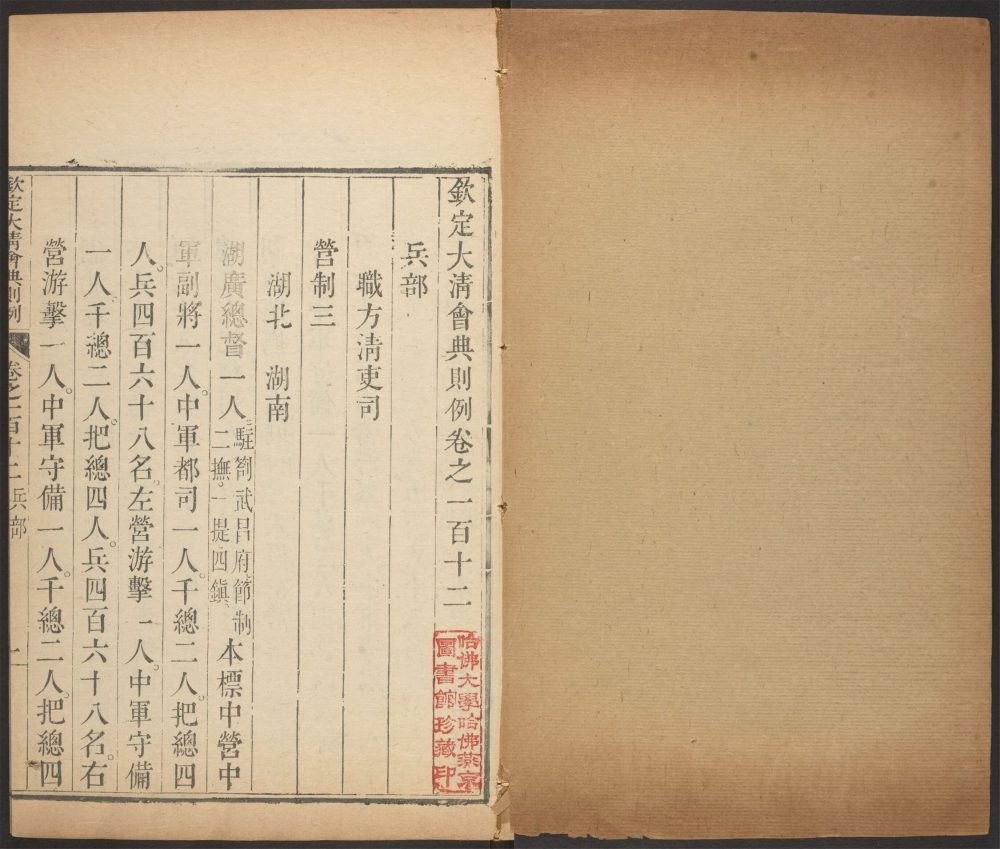 欽定大清會典則例卷之一百十二
哈佛大學哈佛燕京
圖書館珍藏印
兵部
職方清吏司
營制三
湖北 湖南
湖廣總督一人。駐劄武昌府。節制二撫。一提。四鎮。本標中營中
軍副將一人。中軍都司一人。千總二人。把總四
人。兵四百六十八名。左營游擊一人。中軍守備
一人。千總二人。把總四人。兵四百六十八名。右
營游擊一人。中軍守備一人。千總二人。把總四
欽定大清會典則例 卷之一百十二 兵部 一